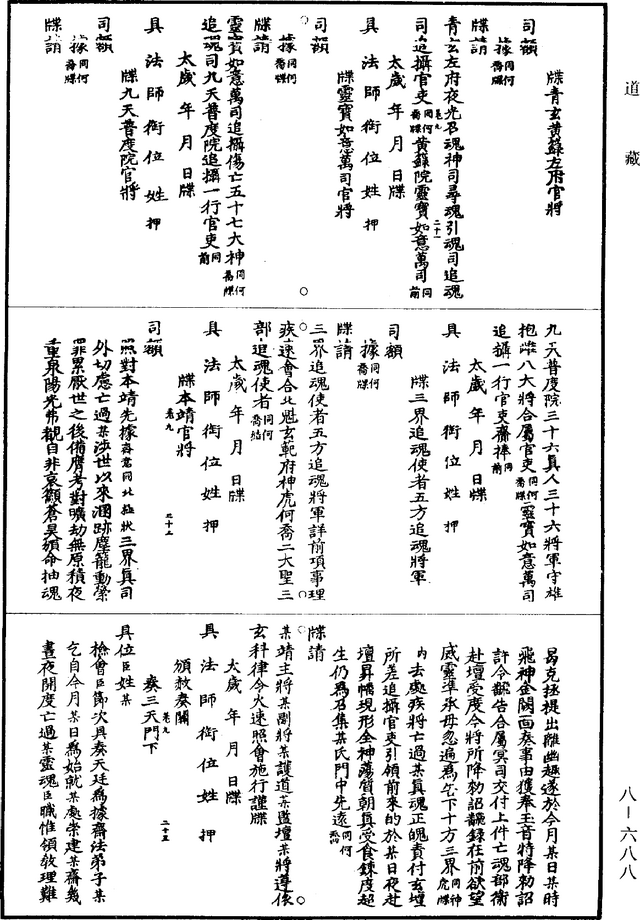 道藏
牒青玄黃籙左府官將
司額
據同何喬牒
牒請
青玄左府夜光召魂神司尋魂引魂司追魂
司追攝官吏同何喬牒黃籙院靈寶如意萬司同前
太歲年月日牒
具法師銜位姓押
牒靈寶如意萬司官將
司額
據同何喬牒
牒請
靈寶如意萬司追攝傷亡五十七大神同何喬牒
追魂司九天普度院追攝一行官吏同前
太歲年月日牒
具法師銜位姓押
牒九天普度院官將
司額
據同何喬牒
牒請
九天普度院三十六真人三十六將軍守雄
抱雌八大將合屬官吏同何喬牒靈寶如意萬司
追攝一行官吏齋捧同前
太歲年月日牒
具法師銜位姓押
牒三界追魂使者五方追魂將軍
司額
據同何喬牒
牒請
三界追魂使者五方追魂將軍詳前項事理
疾速會合北魁玄範府神虎何喬二大聖三
部追魂使者同何喬結
太歲年月日牒
具法師銜位姓押
牒本靖官將
司額
照對本靖先據齋意同北極狀三界真司
外切慮亡過某涉世以來溷跡塵籠動縈
罪累厭世之後備膺考對曠劫無原積夜
重泉陽光弗觀自非哀籲蒼昊頒命抽魂
曷克拯提出離幽趣遂於今月某日某時
飛神金闕面奏事由獲奉玉音特降勑詔
許令翻告合屬冥司交付上件亡魂部衛
赴壇受度今將所降勑詔翻錄在前欲望
威靈準承毋忽遍為乞下十方三界同神虎牒
內去處疾將亡過某真魂正魄責付玄壇
所差追攝官吏引領前來的於某日夜赴
壇昇幡現形全神蕩質朝真受食鍊度超
生仍為召集某氏門中先遠同何喬
牒請
某靖主將某副將某護道某監壇某將遵依
玄科律令火速照會施行謹牒
太歲年月日牒
具法師銜位姓押
頒赦奏闕
奏三天門下
具位臣姓某
檢會臣節次具奏天廷為據齋法弟子某
乞自今月某日為始就某處崇建某齋幾
晝夜開度亡過某靈魂臣職惟領教理難
卷九
二十一
卷九
二十二
卷九
二十三
八—六八八